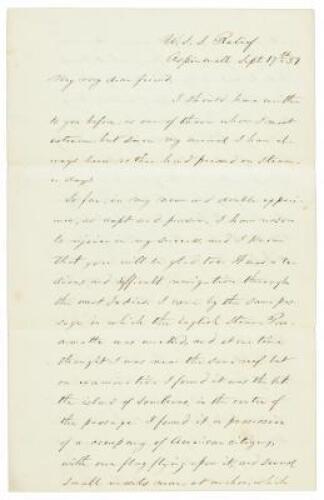 U.S.S. Relief
Aspinwall Sept. 17th 59
My very dear friend,
I should have written
to you before, as one of those whom I most
esteem, but since my arrival I have al-
ways been so hard pressed on steam-
er days.
So far, in my new and double experi-
ence, as capt and purser, I have reason
to rejoice in my success, and I know
that you will be glad too. I had a te-
dious and difficult navigation through
the West Indies. I came by the same pas-
sage in which the English steamer
was wrecked, and at one time
thought I was near the same reef but
on examination I found it was the
island of Sombrero, in the center of
the passage. I found it in possession
of a company of American citizens,
with our flag flying upon it, and several
small vessels near, at anchor, which